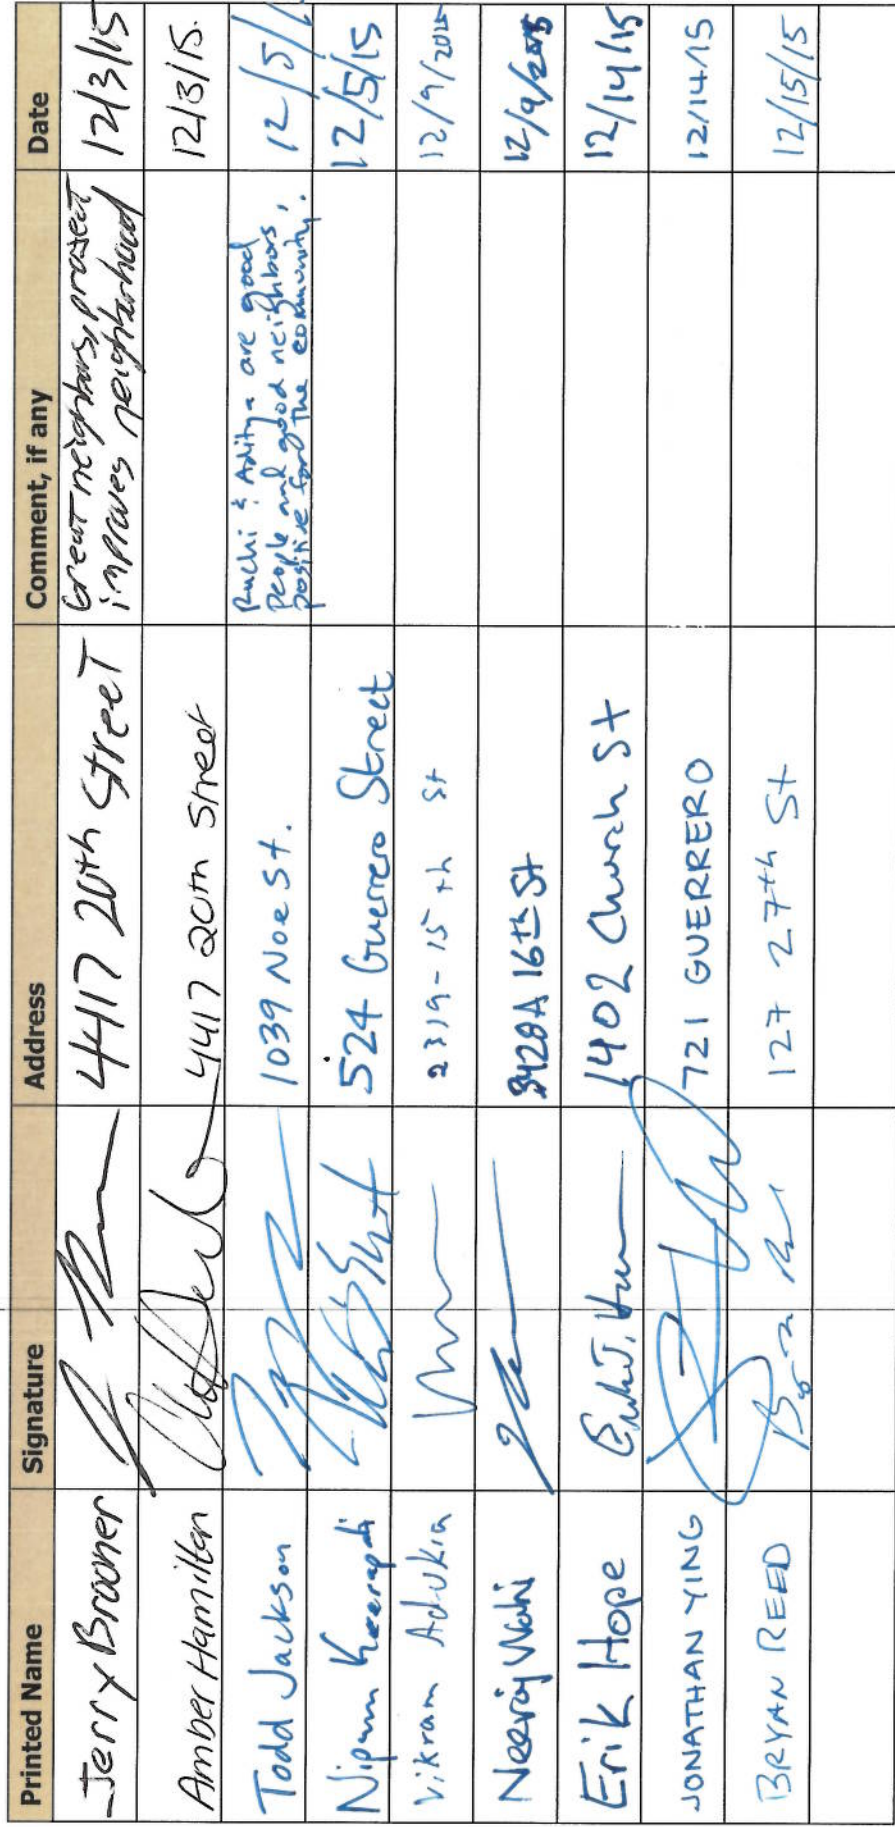 Printed Name Signature Address Comment, if any Date
Jerry Brooner 4417 20th Street Great neighbors, project 12/3/15
improves neighborhood
Amber Hamilton 4417 20th Street 12/3/15.
Todd Jackson 1039 Noe St. Ruchi & Aditya are good 12/5/
People and good neighbors,
positive for the community.
Nipun 524 Guerrero Street 12/5/15
Vikram Adukia 2319-15th St 12/9/2015
Neeraj Wahi 3428A 16th St 12/9/2015
Erik Hope 1402 Church St 12/14/15
JONATHAN YING 721 GUERRERO 12/14/15
BRYAN REED 127 27th St 12/15/15